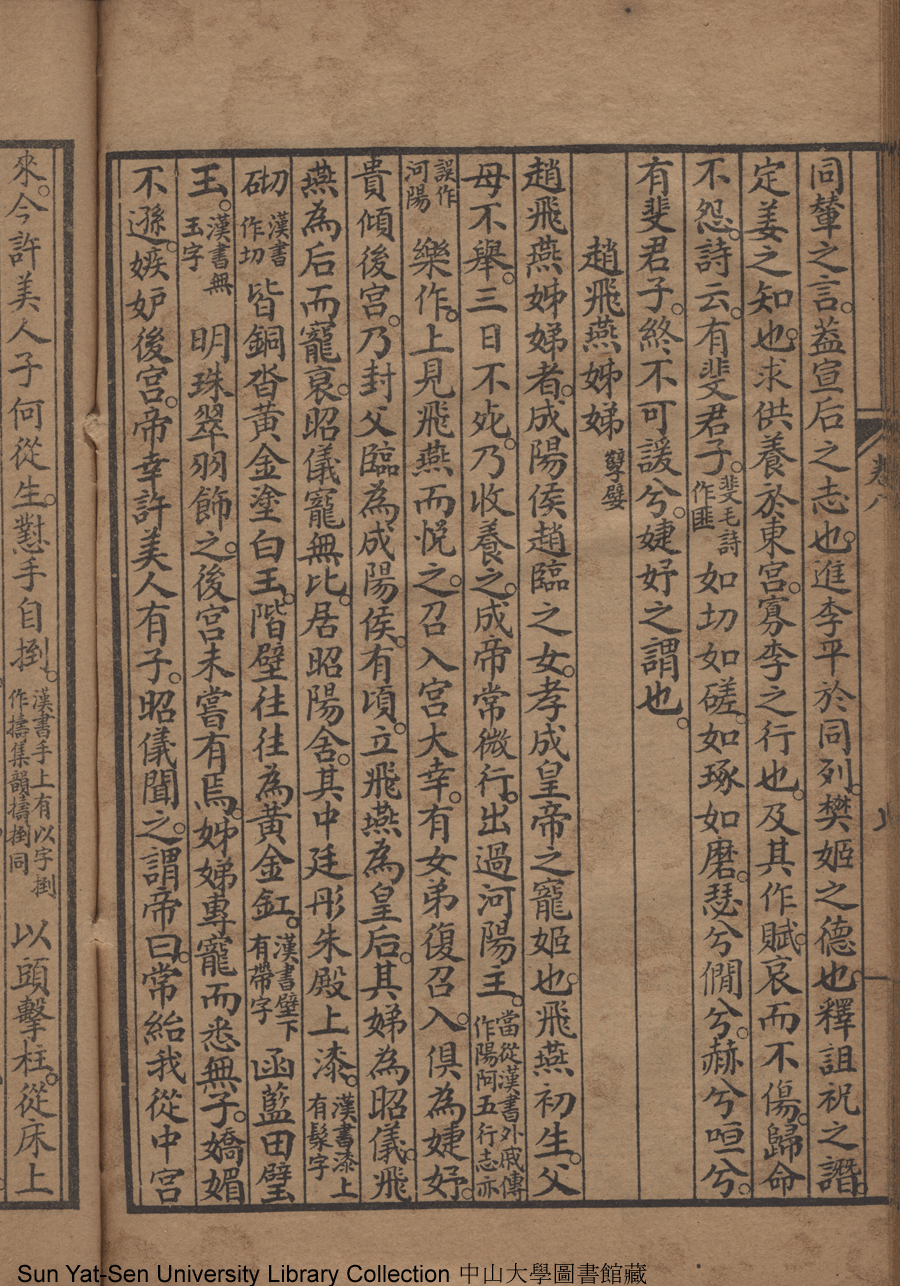 同輦之言。葢宣后之志也。進李平於同列。樊姬之德也。釋詛祝之譖。
定姜之知也。求供養於東宮。寡李之行也。及其作賦。哀而不傷。歸命
不怨。詩云。有斐君子。斐毛詩作匪如切如磋。如琢如磨。瑟兮僩兮。赫兮咺兮。
有斐君子。終不可諼兮。婕妤之謂也。
趙飛燕姊娣 孽嬖
趙飛燕姊娣者。成陽侯趙臨之女。孝成皇帝之寵姬也。飛燕初生。父
母不舉。三日不死。乃收養之。成帝常微行。出過河陽主。當從漢書外戚傳作陽阿五行志亦
誤作河陽樂作。上見飛燕而悅之。召入宮大幸。有女弟復召入。俱為婕妤。
貴傾後宮。乃封父臨為成陽侯。有頃。立飛燕為皇后。其娣為昭儀。飛
燕為后而寵衰。昭儀寵無比。居昭陽舍。其中廷彤朱殿上漆。漢書漆上有髹字
砌漢書作切皆銅沓黃金塗白玉。階壁往往為黃金釭。漢書壁下有帶字函藍田璧
玉。漢書無玉字明珠翠羽飾之。後宮未嘗有焉。姊娣專寵而悉無子。嬌媚
不遜。嫉妒後宮。帝幸許美人有子。昭儀聞之。謂帝曰。常紿我從中宮
卷八
八
來。今許美人子何從生。懟手自擣。漢書手上有以字擣作擣集韻擣㨶同以頭擊柱。從床上
Sun Yat-Sen University Library Collection 中山大學圖書館藏